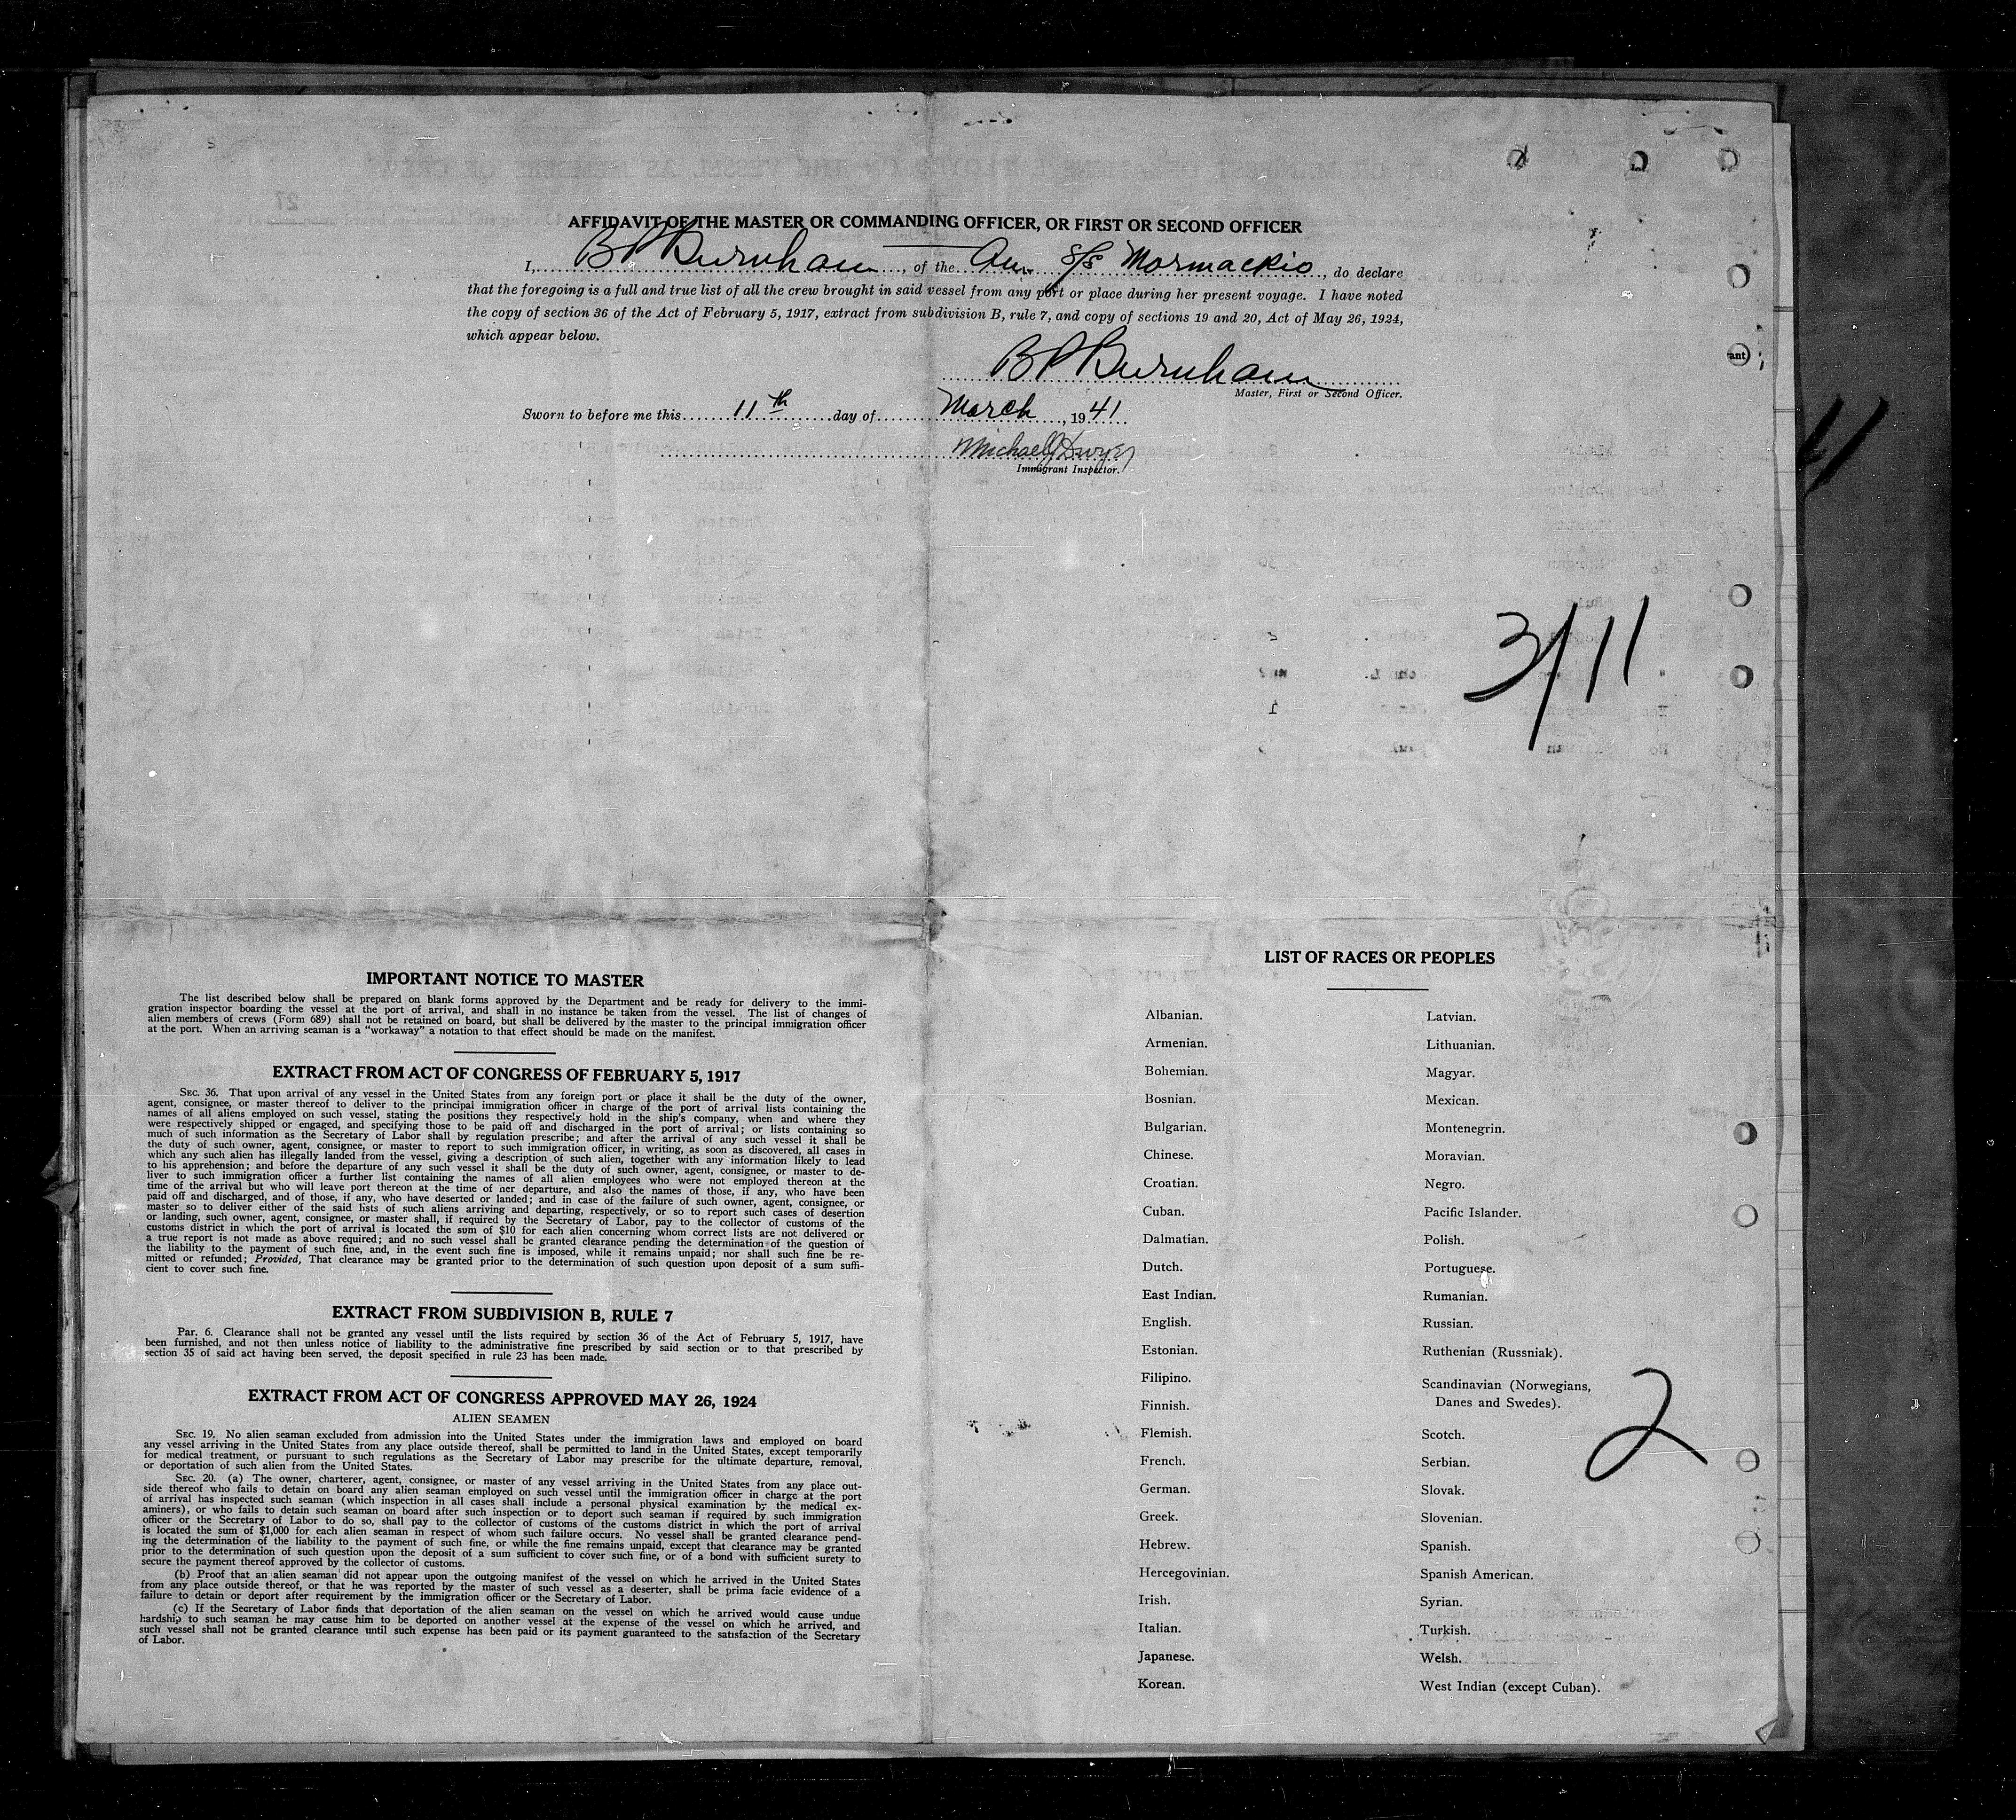 AFFIDAVIT OF THE MASTER OR COMMANDING OFFICER, OR FIRST OR SECOND OFFICER
I, B P Burnham, of the Am. S/S Mormackio, do declare
that the foregoing is a full and true list of all the crew brought in said vessel from any port or place during her present voyage. I have noted
the copy of section 36 of the Act of February 5, 1917, extract from subdivision B, rule 7, and copy of sections 19 and 20, Act of May 26, 1924,
which appear below.
B P Burnham
Master, First or Second Officer.
Sworn to before me this 11th day of March, 1941
Michael J Dwyer
Immigrant Inspector.
3/11
IMPORTANT NOTICE TO MASTER
The list described below shall be prepared on blank forms approved by the Department and be ready for delivery to the immi-
gration inspector boarding the vessel at the port of arrival, and shall in no instance be taken from the vessel. The list of changes of
alien members of crews (Form 689) shall not be retained on board, but shall be delivered by the master to the principal immigration officer
at the port. When an arriving seaman is a “workaway” a notation to that effect should be made on the manifest.
EXTRACT FROM ACT OF CONGRESS OF FEBRUARY 5, 1917
SEC. 36. That upon arrival of any vessel in the United States from any foreign port or place it shall be the duty of the owner,
agent, consignee, or master thereof to deliver to the principal immigration officer in charge of the port of arrival lists containing the
names of all aliens employed on such vessel, stating the positions they respectively hold in the ship's company, when and where they
were respectively shipped or engaged, and specifying those to be paid off and discharged in the port of arrival; or lists containing so
much of such information as the Secretary of Labor shall by regulation prescribe; and after the arrival of any such vessel it shall be
the duty of such owner, agent, consignee, or master to report to such immigration officer, in writing, as soon as discovered, all cases in
which any such alien has illegally landed from the vessel, giving a description of such alien, together with any information likely to lead
to his apprehension; and before the departure of any such vessel it shall be the duty of such owner, agent, consignee, or master to de-
liver to such immigration officer a further list containing the names of all alien employees who were not employed thereon at the
time of the arrival but who will leave port thereon at the time of her departure, and also the names of those, if any, who have been
paid off and discharged, and of those, if any, who have deserted or landed; and in case of the failure of such owner, agent, consignee, or
master so to deliver either of the said lists of such aliens arriving and departing, respectively, or so to report such cases of desertion
or landing, such owner, agent, consignee, or master shall, if required by the Secretary of Labor, pay to the collector of customs of the
customs district in which the port of arrival is located the sum of $10 for each alien concerning whom correct lists are not delivered or
a true report is not made as above required; and no such vessel shall be granted clearance pending the determination of the question of
the liability to the payment of such fine, and, in the event such fine is imposed, while it remains unpaid; nor shall such fine be re-
mitted or refunded; Provided, That clearance may be granted prior to the determination of such question upon deposit of a sum suffi-
cient to cover such fine.
EXTRACT FROM SUBDIVISION B, RULE 7
Par. 6. Clearance shall not be granted any vessel until the lists required by section 36 of the Act of February 5, 1917, have
been furnished, and not then unless notice of liability to the administrative fine prescribed by said section or to that prescribed by
section 35 of said act having been served, the deposit specified in rule 23 has been made.
EXTRACT FROM ACT OF CONGRESS APPROVED MAY 26, 1924
ALIEN SEAMEN
SEC. 19. No alien seaman excluded from admission into the United States under the immigration laws and employed on board
any vessel arriving in the United States from any place outside thereof, shall be permitted to land in the United States, except temporarily
for medical treatment, or pursuant to such regulations as the Secretary of Labor may prescribe for the ultimate departure, removal,
or deportation of such alien from the United States.
SEC. 20. (a) The owner, charterer, agent, consignee, or master of any vessel arriving in the United States from any place out-
side thereof who fails to detain on board any alien seaman employed on such vessel until the immigration officer in charge at the port
of arrival has inspected such seaman (which inspection in all cases shall include a personal physical examination by the medical ex-
aminers), or who fails to detain such seaman on board after such inspection or to deport such seaman if required by such immigration
officer or the Secretary of Labor to do so, shall pay to the collector of customs of the customs district in which the port of arrival
is located the sum of $1,000 for each alien seaman in respect of whom such failure occurs. No vessel shall be granted clearance pend-
ing the determination of the liability to the payment of such fine, or while the fine remains unpaid, except that clearance may be granted
prior to the determination of such question upon the deposit of a sum sufficient to cover such fine, or of a bond with sufficient surety to
secure the payment thereof approved by the collector of customs.
(b) Proof that an alien seaman did not appear upon the outgoing manifest of the vessel on which he arrived in the United States
from any place outside thereof, or that he was reported by the master of such vessel as a deserter, shall be prima facie evidence of a
failure to detain or deport after requirement by the immigration officer or the Secretary of Labor.
(c) If the Secretary of Labor finds that deportation of the alien seaman on the vessel on which he arrived would cause undue
hardship to such seaman he may cause him to be deported on another vessel at the expense of the vessel on which he arrived, and
such vessel shall not be granted clearance until such expense has been paid or its payment guaranteed to the satisfaction of the Secretary
of Labor.
LIST OF RACES OR PEOPLES
Albanian.
Armenian.
Bohemian.
Bosnian.
Bulgarian.
Chinese.
Croatian.
Cuban.
Dalmatian.
Dutch.
East Indian.
English.
Estonian.
Filipino.
Finnish.
Flemish.
French.
German.
Greek.
Hebrew.
Hercegovinian.
Irish.
Italian.
Japanese.
Korean.
Latvian.
Lithuanian.
Magyar.
Mexican.
Montenegrin.
Moravian.
Negro.
Pacific Islander.
Polish.
Portuguese.
Rumanian.
Russian.
Ruthenian (Russniak).
Scandinavian (Norwegians,
Danes and Swedes).
Scotch.
Serbian.
Slovak.
Slovenian.
Spanish.
Spanish American.
Syrian.
Turkish.
Welsh.
West Indian (except Cuban).
2